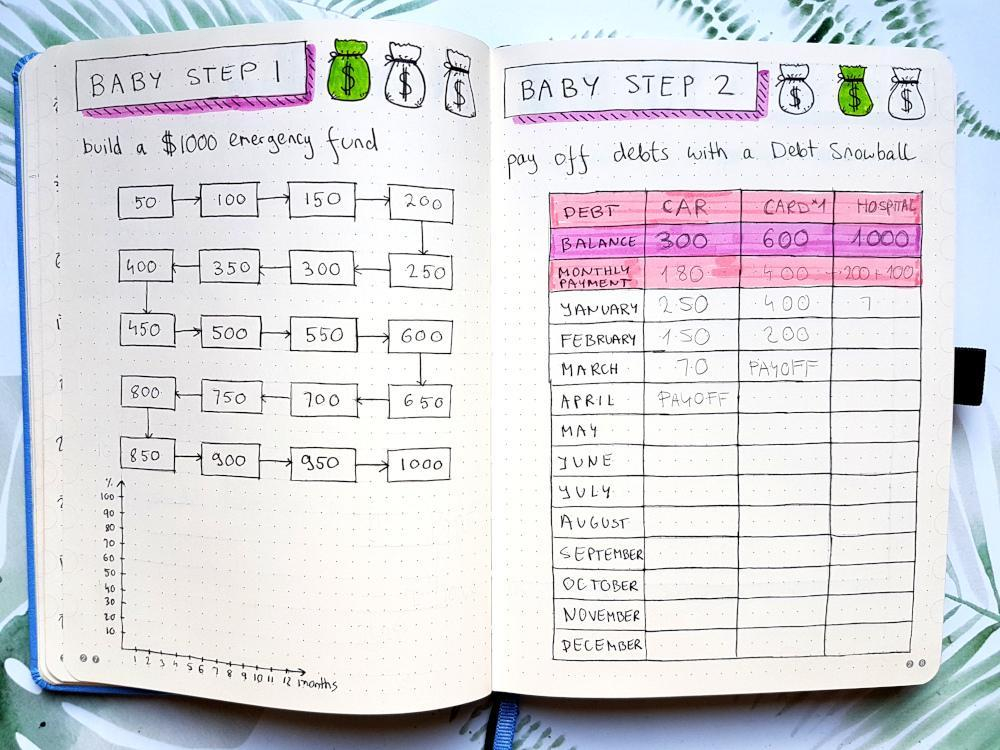 BABY STEP 1
build a $1000 emergency fund
50 100 150 200
400 350 300 250
450 500 550 600
800 750 700 650
850 900 950 1000
%
100
90
80
70
60
50
40
30
20
10
1 2 3 4 5 6 7 8 9 10 11 12 months
27
BABY STEP 2
pay off debts with a Debt Snowball
DEBT CAR CARD#1 HOSPITAL
BALANCE 300 600 1000
MONTHLY PAYMENT 180 400 200+100
YANUARY 250 400 7
FEBRUARY 150 200
MARCH 70 PAYOFF
APRIL PAYOFF
MAY
YUNE
YULY
AUGUST
SEPTEMBER
OCTOBER
NOVEMBER
DECEMBER
28
$ $ $
$ $ $